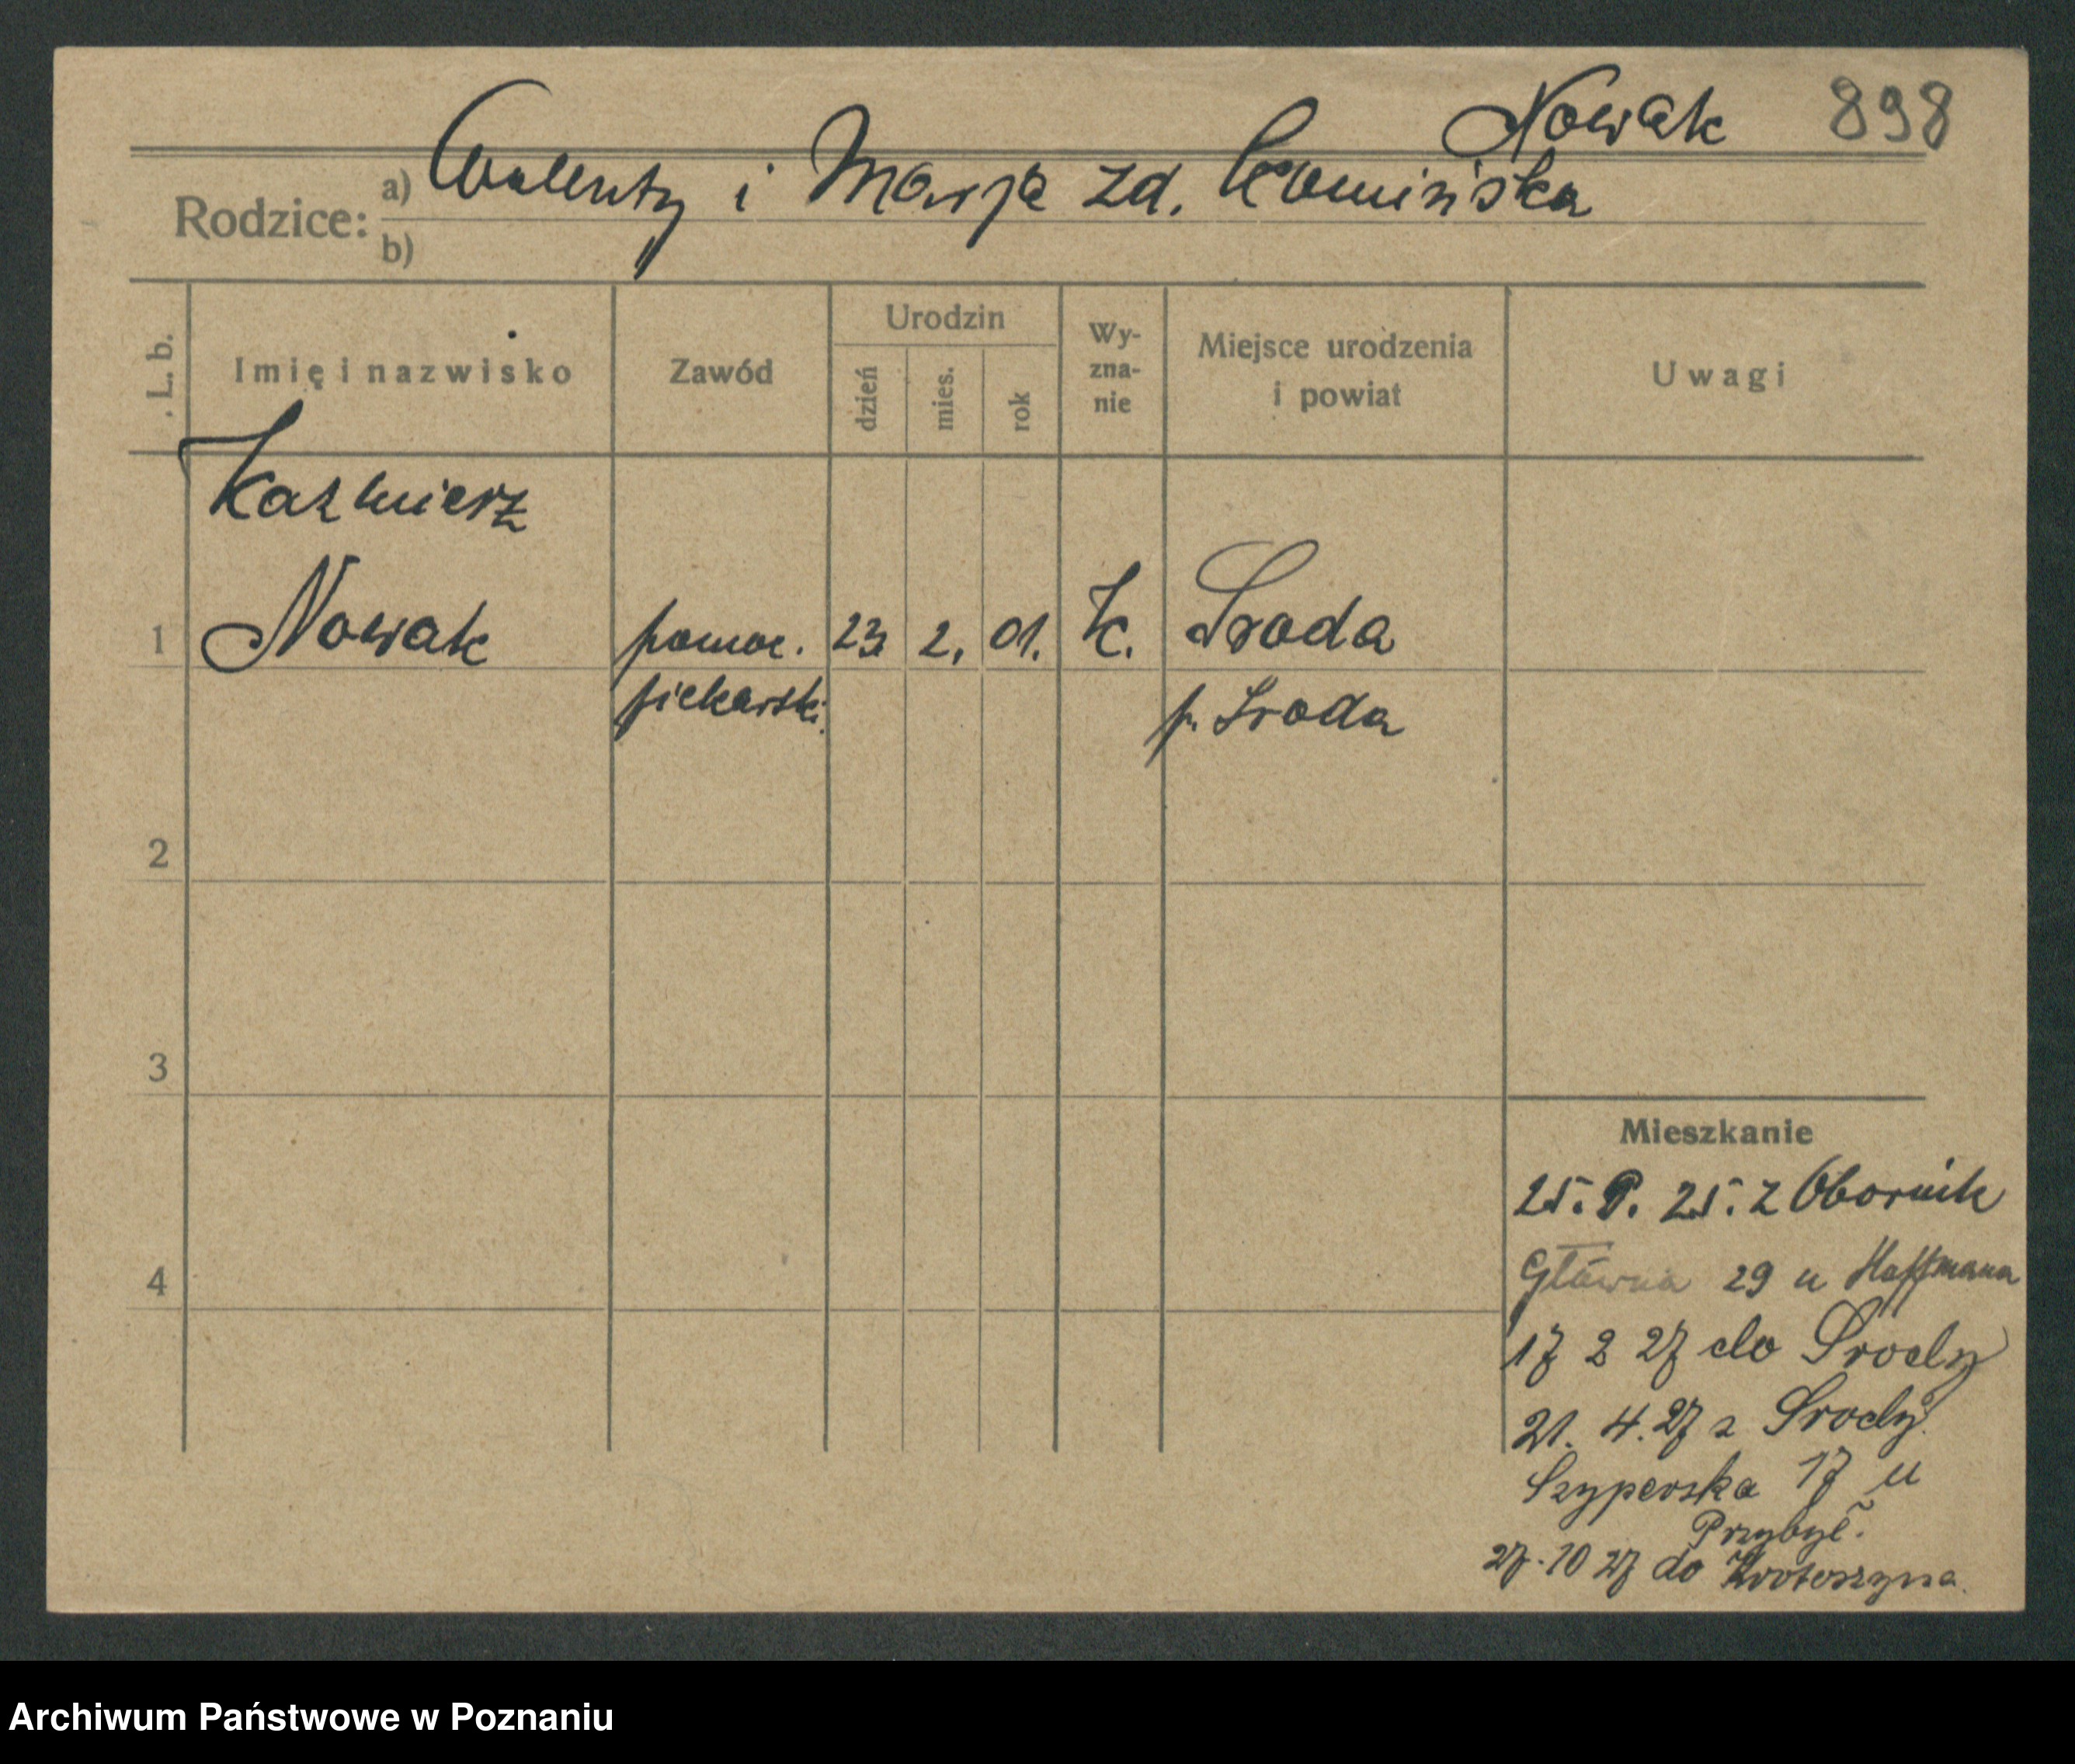 Nowak 898
Rodzice: a) Walenty i Marja zd.
b)
L. b.
Imię i nazwisko
Zawód
Urodzin
dzień
mies.
rok
Wy-
zna-
nie
Miejsce urodzenia
i powiat
Uwagi
Kazmierz
1 Nowak pomoc. 23 2. 01. K. Sroda
piekarski p. Sroda
2
3
4
Mieszkanie
25. 25. z Obornik
Główna 29 u Hoffmana
17 2 27 do Srody
21. 4. 27 z Srody
Szyperska 17 u
Przybył.
27. 10 27 do Krotoszyna.
Archiwum Państwowe w Poznaniu